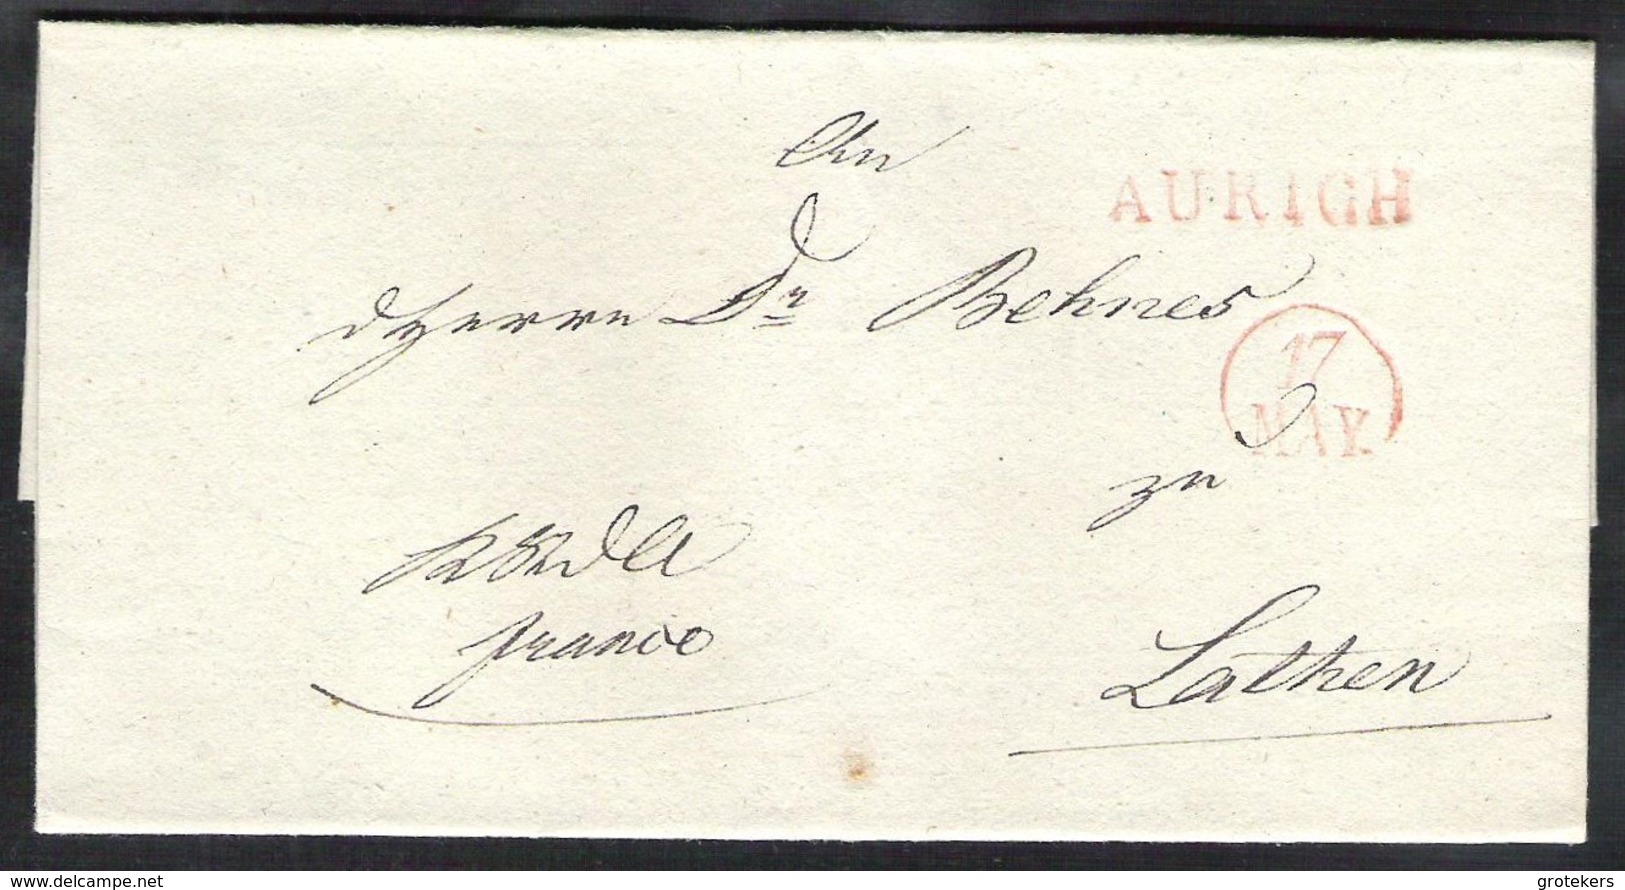 An
AURICH
Herrn Dr Behnes
17
MAY
zu
franco
Lathen
www.delcampe.net
grotekers